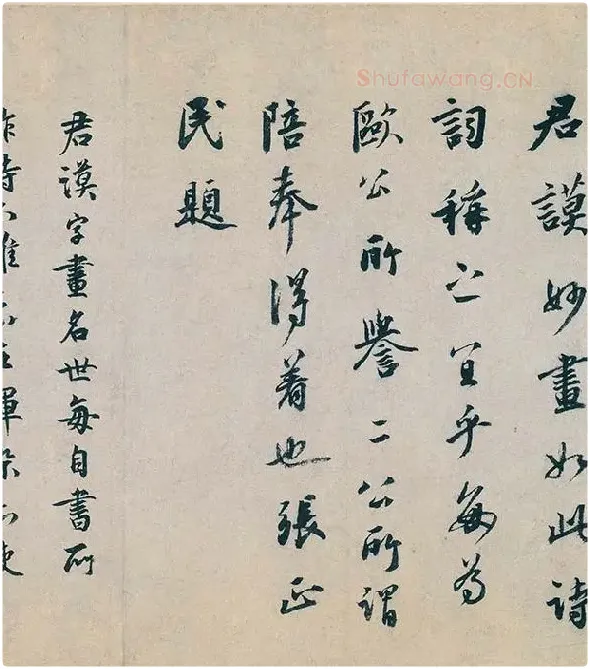 Shufawang.CN
君謨妙畫如此詩
詞稱之宜乎每為
歐公所譽二公所謂
陪奉得着也張正
民題
君謨字畫名世每自書所